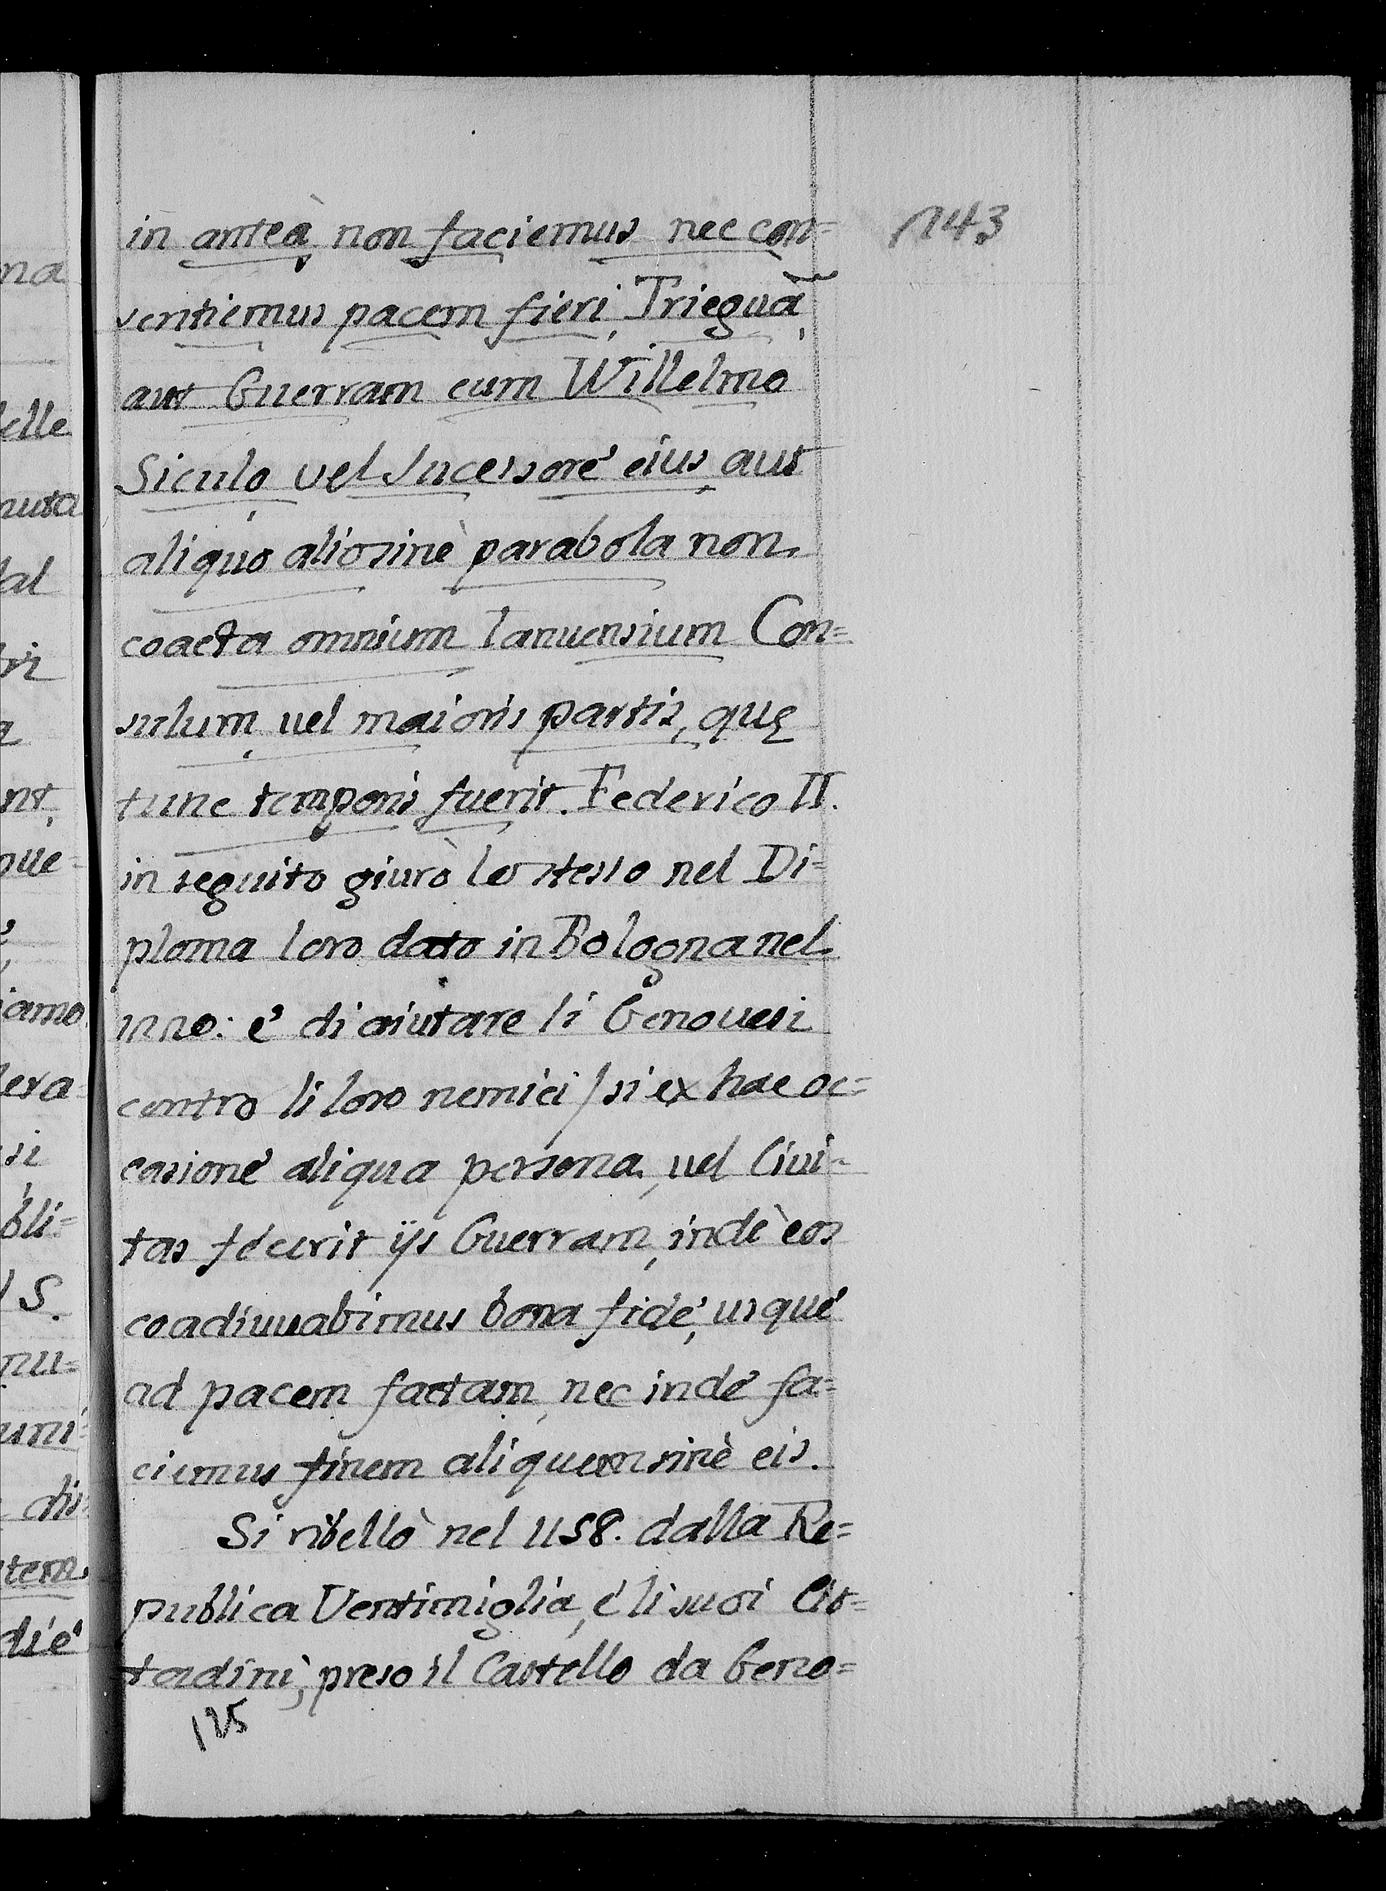 in anteà non faciemus nec con=
sentiemus pacem fieri, Trieguã,
aut Guerram cum Willelmo
Siculo vel Sucessoré eius aut
aliquo alio sinè parabola non
coacta omnium Ianuensium Con=
sulum, uel maioris partis, quę
tunc temporis fuerit. Federico II.
in seguito giurò lo stesso nel Di=
ploma loro dato in Bologna nel
1220: é di aiutare li Genouesi
contro li loro nemici / si ex hac oc=
casioné aliqua persona, uel Ciui=
tas fécerit ijs Guerram, indè eos
coadiuuabimus bona fidé, usqué
ad pacem factam, nec indé fa=
ciemus finem aliquem sinè eis.
Si ribellò nel 1158. dalla Re=
publica Ventimiglia, é li suoi Cit=
tadini, preso il Castello da Geno=
125